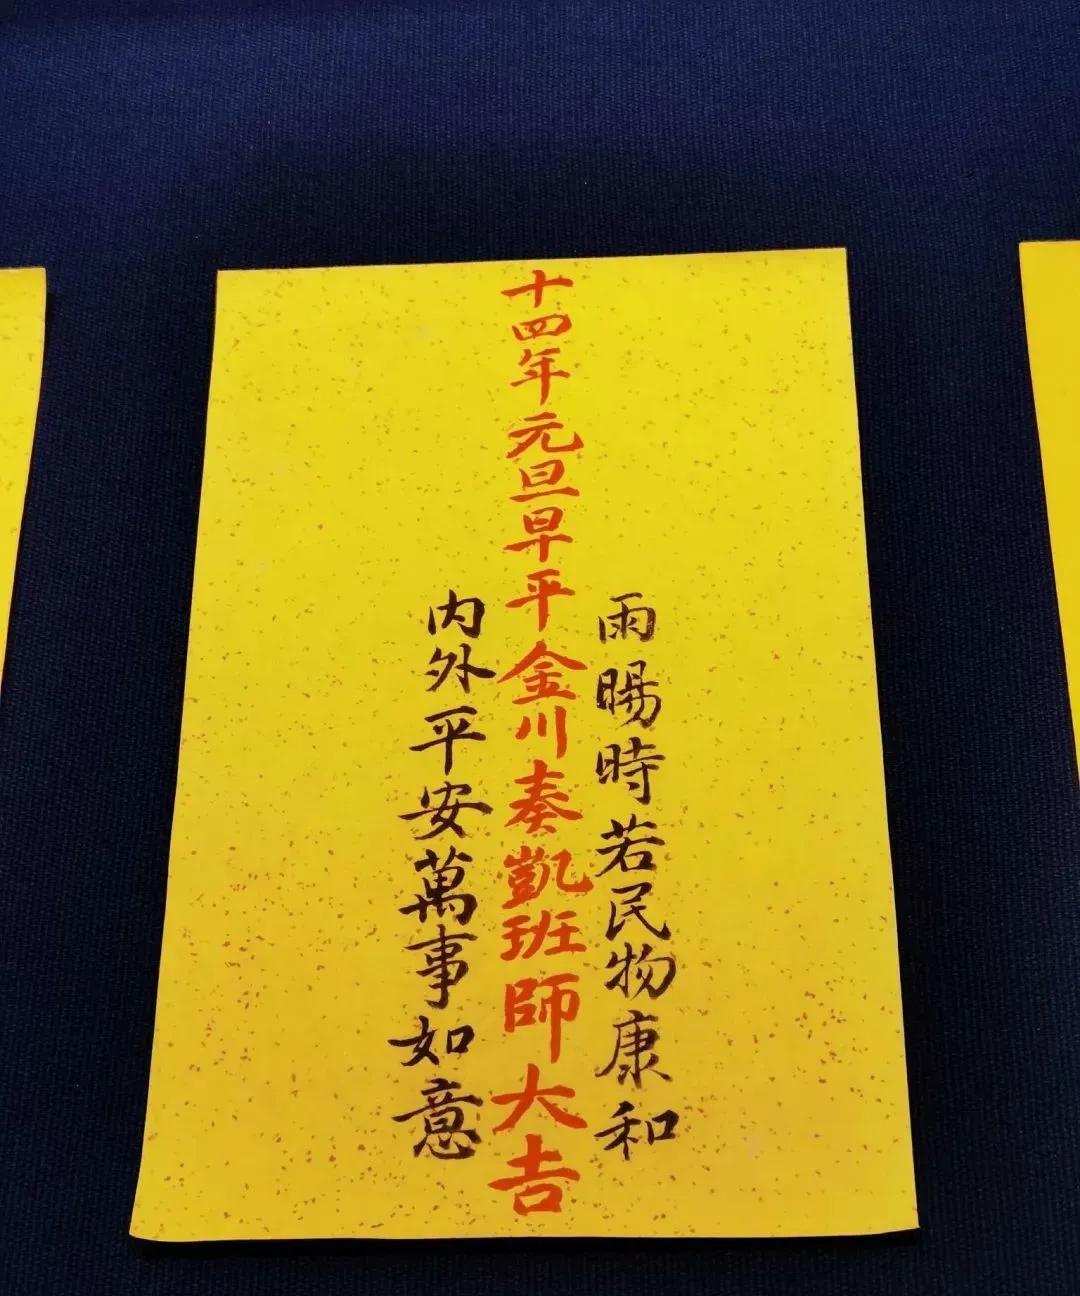 雨暘時若民物康和
十四年元旦早平金川奏凱班師大吉
内外平安萬事如意